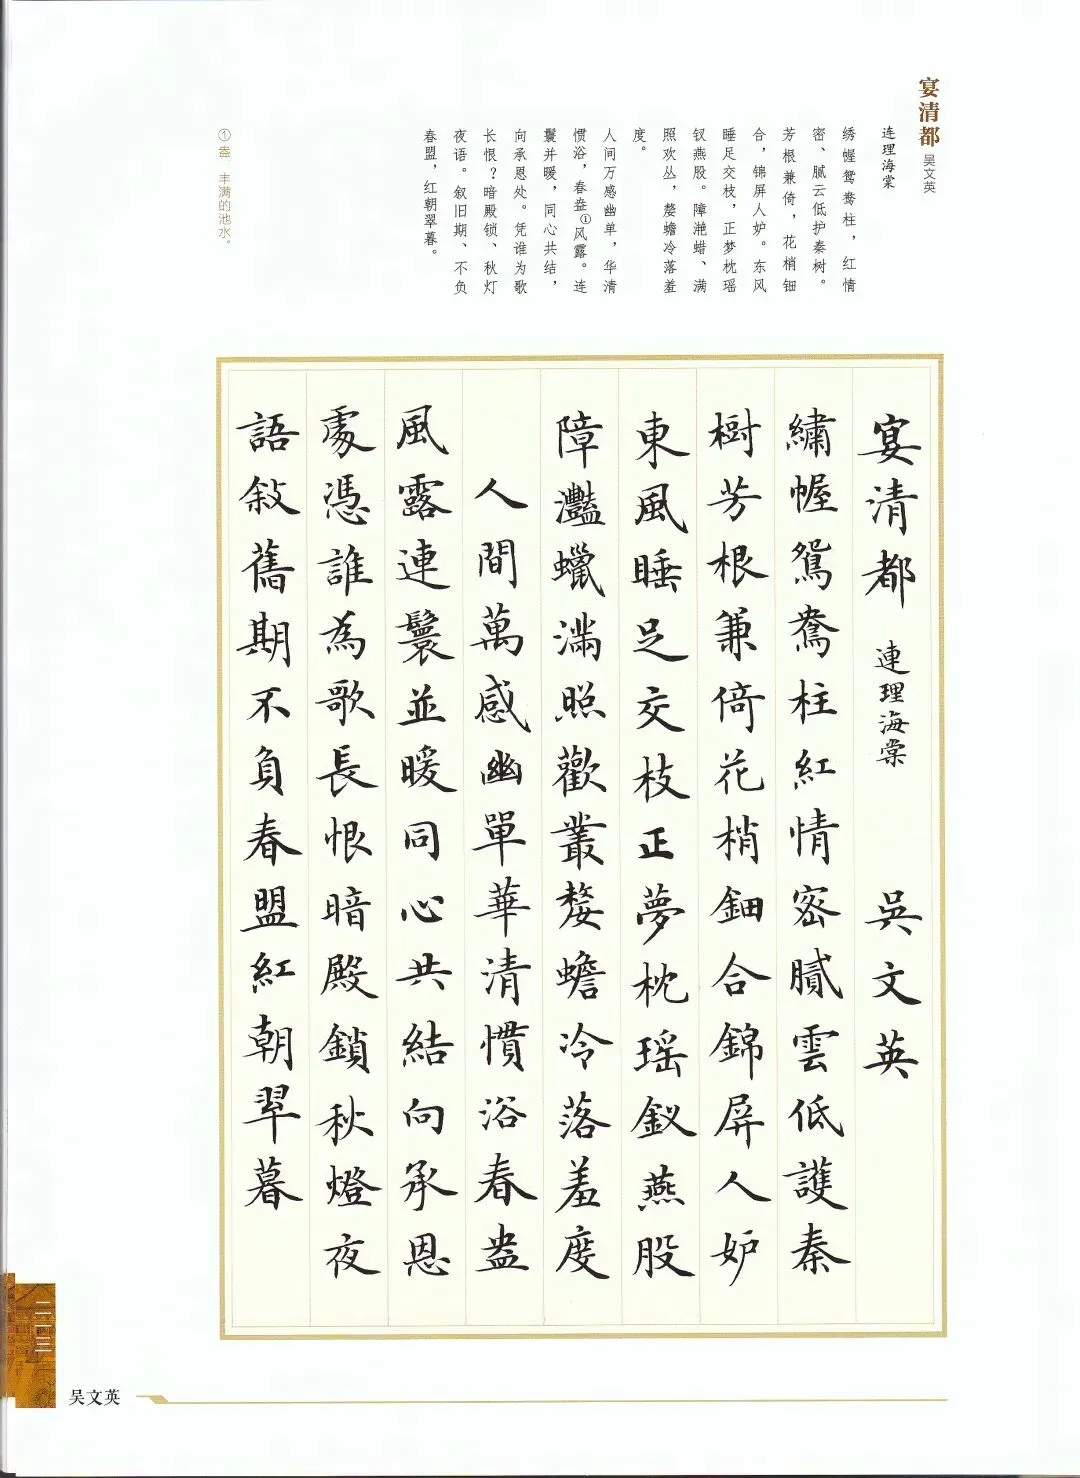 宴清都 吴文英
连理海棠
绣幄鸳鸯柱，红情
密、腻云低护秦树。
芳根兼倚，花梢钿
合，锦屏人妒。东风
睡足交枝，正梦枕瑶
钗燕股。障滟蜡、满
照欢丛，嫠蟾冷落羞
度。
人间万感幽单，华清
惯浴，春盎①风露。连
鬟并暖，同心共结，
向承恩处。凭谁为歌
长恨？暗殿锁、秋灯
夜语。叙旧期、不负
春盟，红朝翠暮。
①盎 丰满的池水。
宴清都 連理海棠 吳文英
繡幄鴛鴦柱紅情密膩雲低護秦
樹芳根兼倚花梢鈿合錦屏人妒
東風睡足交枝正夢枕瑶釵燕股
障灩蠟滿照歡叢嫠蟾冷落羞度
人間萬感幽單華清慣浴春盎
風露連鬟並暖同心共結向承恩
處憑誰為歌長恨暗殿鎖秋燈夜
語敘舊期不負春盟紅朝翠暮
二一三
吴文英